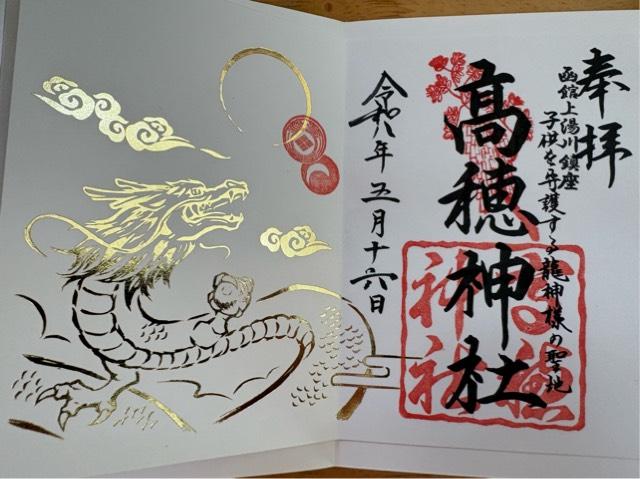 奉拝
函館上湯川鎮座
子供を守護する龍神様の聖地
髙穂神社
令和八年五月十六日